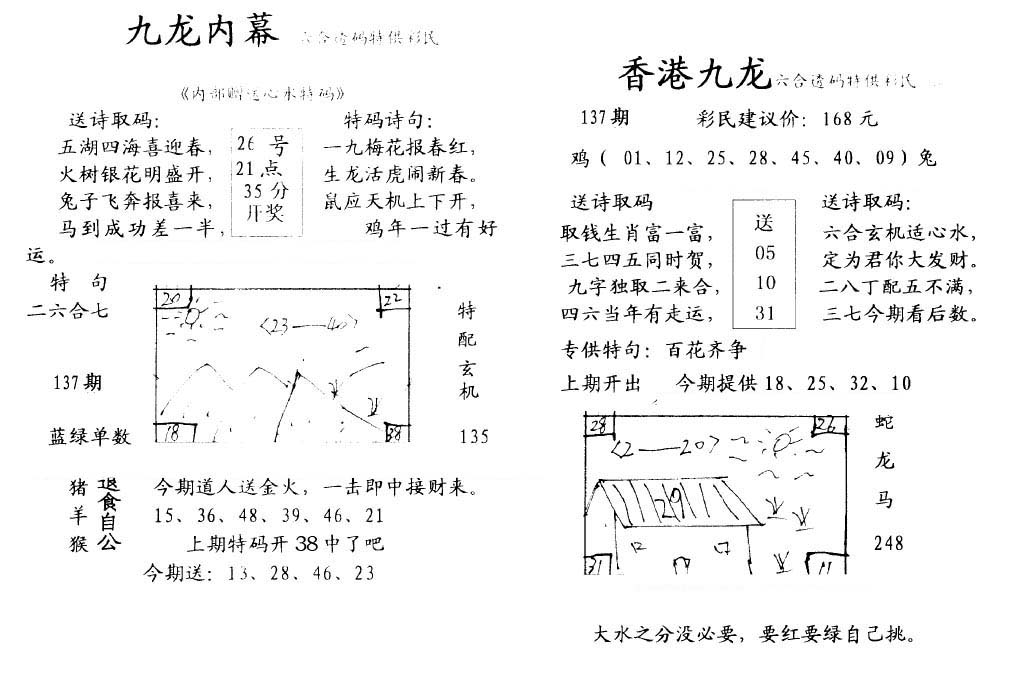 九龙内幕 六合透码特供彩民
《内部赠送心水特码》
送诗取码：
五湖四海喜迎春，
火树银花明盛开，
兔子飞奔报喜来，
马到成功差一半，
26 号
21 点
35 分
开奖
特码诗句：
一九梅花报春红，
生龙活虎闹新春。
鼠应天机上下开，
鸡年一过有好
运。
特 句
二六合七
137期
蓝绿单数
20
22
<23——40>
18
38
特
配
玄
机
135
猪
羊
猴
退
食
自
公
今期道人送金火，一击即中接财来。
15、36、48、39、46、21
上期特码开38中了吧
今期送：13、28、46、23
香港九龙 六合透码特供彩民
137期 彩民建议价：168元
鸡（ 01、12、25、28、45、40、09）兔
送诗取码
取钱生肖富一富，
三七四五同时贺，
九字独取二来合，
四六当年有走运，
送
05
10
31
送诗取码：
六合玄机适心水，
定为君你大发财。
二八丁配五不满，
三七今期看后数。
专供特句：百花齐争
上期开出 今期提供18、25、32、10
28
26
<2——20>
29
31
11
蛇
龙
马
248
大水之分没必要，要红要绿自己挑。